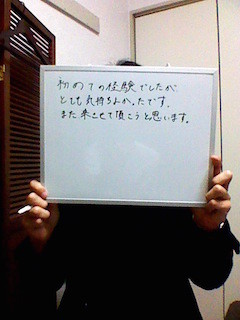 初めての経験でしたが、
とても気持ちよかったです。
また来させて頂こうと思います。